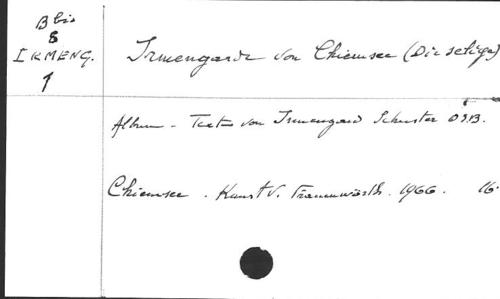 B bis
8
IRMENG.
1
Irmengard von Chiemsee (Die selige)
Album - Texte von Irmengard Schuster OSB.
Chiemsee. Kunstv. Frauenwörth. 1966. 16.